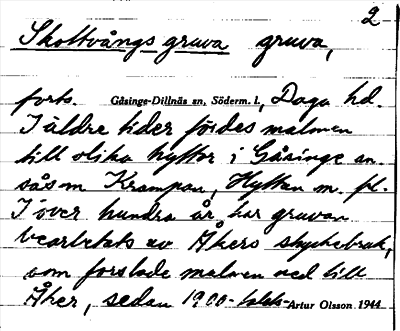 2
Skottvångs gruva gruva,
forts. Gåsinge-Dillnäs sn, Söderm. l., Daga hd.
I äldre tider fördes malmen
till olika hyttor i Gåsinge sn.
såsom Krampan, Hyttan m. fl.
I över hundra år har gruvan
bearbetats av Åkers styckebruk,
som forslade malmen ned till
Åker, sedan 1900-talets
Artur Olsson 1944